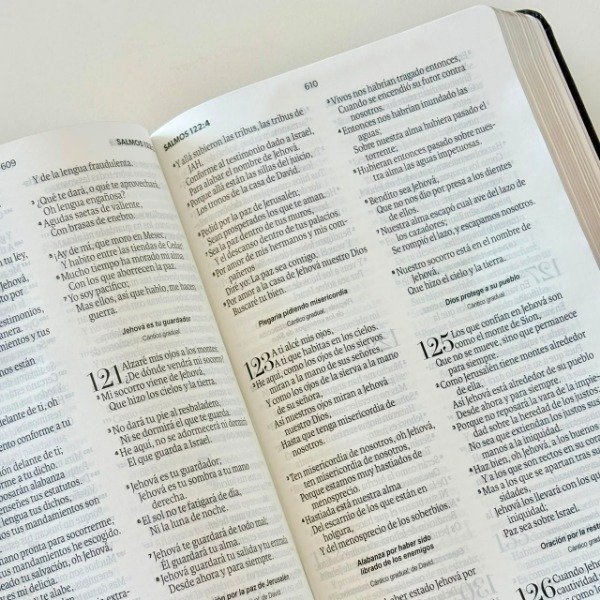 609
SALMOS 122:4
a tu ley,
Jehová,
y tus
están
delante de ti, oh
conforme a tu
delante de ti;
a tu dicho.
alabanza
enseñes tus estatutos.
tu dicho,
tus mandamientos son
mano pronta para socorrerme,
tus mandamientos he escogido.
tu salvación, oh Jehová,
Y de la lengua fraudulenta.
³¿Qué te dará, o qué te aprovechará,
Oh lengua engañosa?
⁴Agudas saetas de valiente,
Con brasas de enebro.
⁵¡Ay de mí, que moro en Mesec,
Y habito entre las tiendas de Cedar!
⁶Mucho tiempo ha morado mi alma
Con los que aborrecen la paz.
⁷Yo soy pacífico;
Mas ellos, así que hablo, me hacen
guerra.
Jehová es tu guardador
Cántico gradual.
121 Alzaré mis ojos a los montes;
¿De dónde vendrá mi socorro?
²Mi socorro viene de Jehová,
Que hizo los cielos y la tierra.
³No dará tu pie al resbaladero,
Ni se dormirá el que te guarda.
⁴He aquí, no se adormecerá ni dormirá
El que guarda a Israel.
⁵Jehová es tu guardador;
Jehová es tu sombra a tu mano
derecha.
⁶El sol no te fatigará de día,
Ni la luna de noche.
⁷Jehová te guardará de todo mal,
Él guardará tu alma.
⁸Jehová guardará tu salida y tu entrada
Desde ahora y para siempre.
Oración por la paz de Jerusalén
Cántico gradual; de David.
SALMOS 122:4
610
⁴Y allá subieron las tribus, las tribus de
JAH,
Conforme al testimonio dado a Israel,
Para alabar el nombre de Jehová.
⁵Porque allá están las sillas del juicio,
Los tronos de la casa de David.
⁶Pedid por la paz de Jerusalén;
Sean prosperados los que te aman.
⁷Sea la paz dentro de tus muros,
Y el descanso dentro de tus palacios.
⁸Por amor de mis hermanos y mis com-
Diré yo: La paz sea contigo.
⁹Por amor a la casa de Jehová nuestro Dios
Buscaré tu bien.
Plegaria pidiendo misericordia
Cántico gradual.
123 A ti alcé mis ojos,
A ti que habitas en los cielos.
²He aquí, como los ojos de los siervos
miran a la mano de sus señores,
Y como los ojos de la sierva a la mano
de su señora,
Así nuestros ojos miran a Jehová
nuestro Dios,
Hasta que tenga misericordia de
nosotros.
³Ten misericordia de nosotros, oh Jehová,
ten misericordia de nosotros,
Porque estamos muy hastiados de
menosprecio.
⁴Hastiada está nuestra alma
Del escarnio de los que están en
holgura,
Y del menosprecio de los soberbios.
Alabanza por haber sido
librado de los enemigos
Cántico gradual; de David.
haber estado Jehová por
³Vivos nos habrían tragado entonces,
Cuando se encendió su furor contra
nosotros.
⁴Entonces nos habrían inundado las
aguas;
Sobre nuestra alma hubiera pasado el
torrente;
⁵Hubieran entonces pasado sobre nues-
tra alma las aguas impetuosas.
⁶Bendito sea Jehová,
Que no nos dio por presa a los dientes
de ellos.
⁷Nuestra alma escapó cual ave del lazo de
los cazadores;
Se rompió el lazo, y escapamos nosotros.
⁸Nuestro socorro está en el nombre de
Jehová,
Que hizo el cielo y la tierra.
Dios protege a su pueblo
Cántico gradual.
125 Los que confían en Jehová son
como el monte de Sion,
Que no se mueve, sino que permanece
para siempre.
²Como Jerusalén tiene montes alrededor
de ella,
Así Jehová está alrededor de su pueblo
Desde ahora y para siempre.
³Porque no reposará la vara de la impie-
dad sobre la heredad de los justos;
No sea que extiendan los justos sus
manos a la iniquidad.
⁴Haz bien, oh Jehová, a los buenos,
Y a los que son rectos en su
⁵Mas a los que se apartan tras
sidades,
Jehová los llevará con los que
iniquidad;
Paz sea sobre Israel.
Oración por la
Cántico gradual.
126 Cuando Jehová